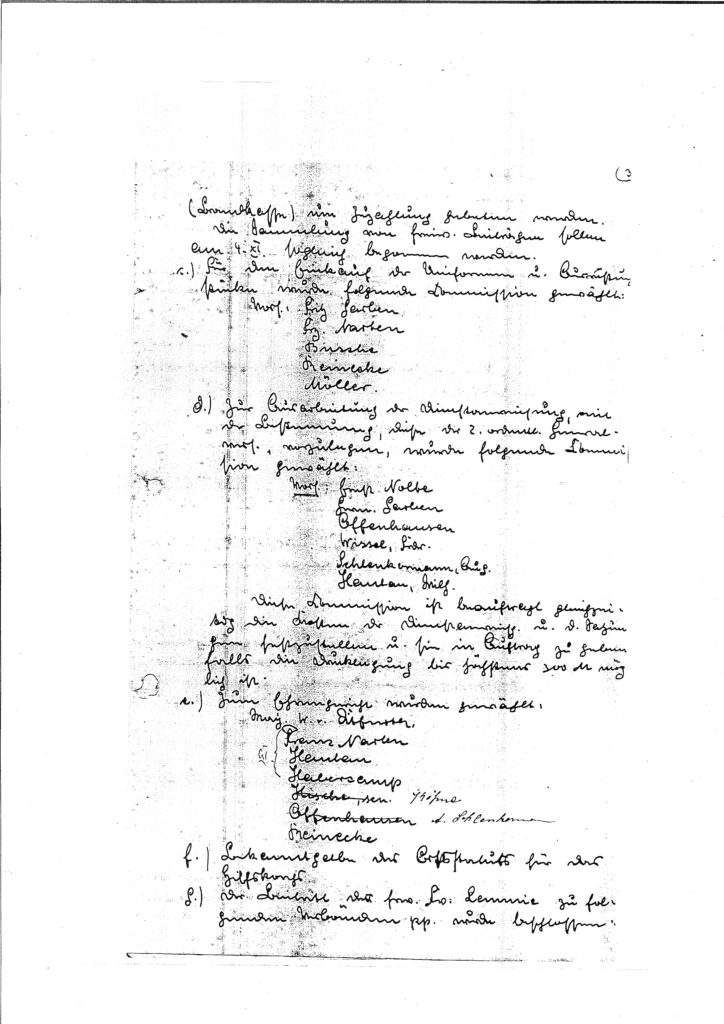 (3
(Brandkasse) um Zuzahlung gebeten werden.
Die Sammlung von freiw. Beiträgen sollen
am 4. XI. sogleich begonnen werden.
c.) Für den Einkauf der Uniformen u. Ausrüstungs
stücke wurde folgende Commission gewählt:
Vors.: Fritz Garben
Frz. Narten
Bussche
Reinecke
Möller.
d.) Zur Ausarbeitung der Dienstanweisung, mit
der Bestimmung, diese der 2. ordentl. General-
vers., vorzulegen, wurde folgende Commis
sion gewählt:
Vors.: Ernst Nolte
Herm. Garben
Offenhausen
Wissel, Frdr.
Schlenkermann, Aug.
Hautau, Wilh.
Diese Commission ist beauftragt gleichzei-
tig die Kosten der Dienstanweis. u. d. Satzun
gen festzustellen u. sie in Auftrag zu geben
falls die Drucklegung bis höchstens 300 M mög
lich ist.
e.) Zum Ehrengericht wurden gewählt:
Maj. W. v. Ditfurth,
Franz Narten
Hautau
Haberkamp
Hische, sen.
Offenhausen A. Schlenkermann
Reinecke
f.) Bekanntgabe des Ortsstatuts für das
Hilfskorps.
g.) Der Beitritt der frw. Fw. Lemmie zu fol-
genden Verbänden pp. wurde beschlossen: